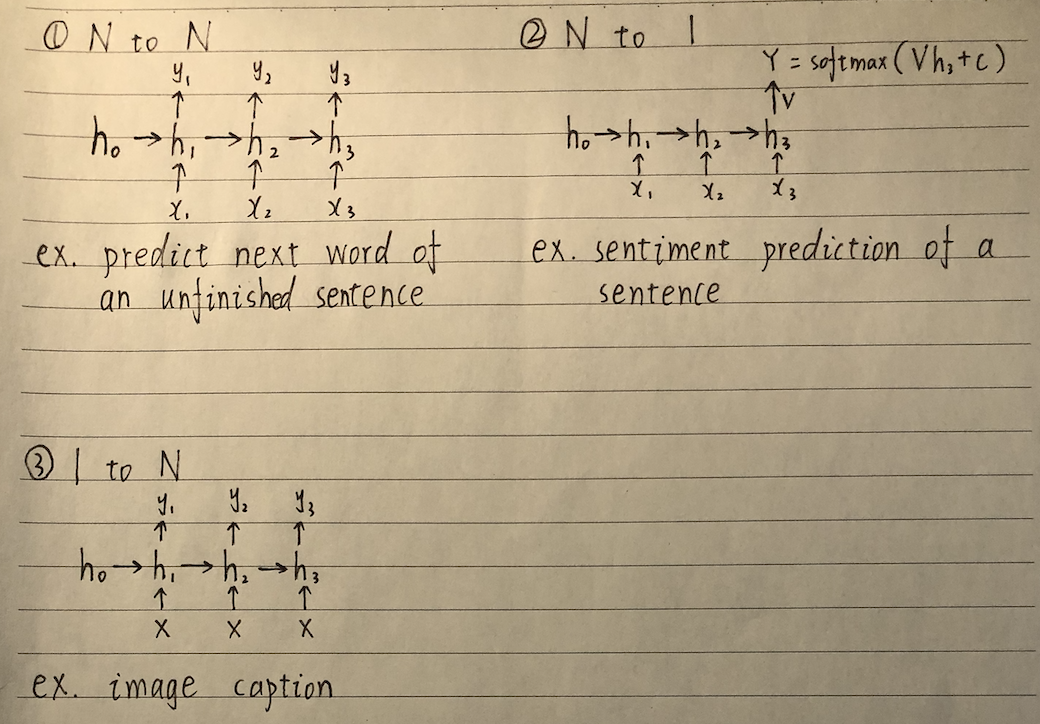 ① N to N
y₁ y₂ y₃
↑ ↑ ↑
h₀ → h₁ → h₂ → h₃
↑ ↑ ↑
x₁ x₂ x₃
ex. predict next word of
an unfinished sentence
② N to 1
Y = softmax(Vh₃+c)
↑V
h₀ → h₁ → h₂ → h₃
↑ ↑ ↑
x₁ x₂ x₃
ex. sentiment prediction of a
sentence
③ 1 to N
y₁ y₂ y₃
↑ ↑ ↑
h₀ → h₁ → h₂ → h₃
↑ ↑ ↑
X X X
ex. image caption